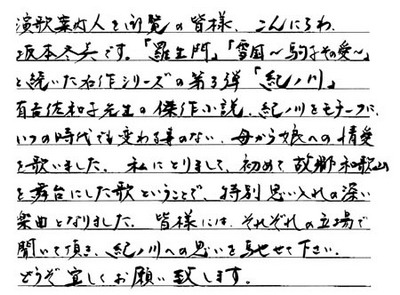 演歌案灯人を閲覧の皆様、こんにちわ、
坂本冬美です。「羅生門」「雪国～駒子その愛～」
と続いた名作シリーズの第3弾「紀ノ川」
有吉佐和子先生の傑作小説、紀ノ川をモチーフに、
いつの時代でも変わる事のない、母から娘への情愛
を歌いました。私にとりまして、初めて故郷和歌山
を舞台にした歌ということで、特別思い入れの深い
楽曲となりました。皆様には、それぞれの立場で
聞いて頂き、紀ノ川への思いを馳せて下さい。
どうぞ宜しくお願い致します。